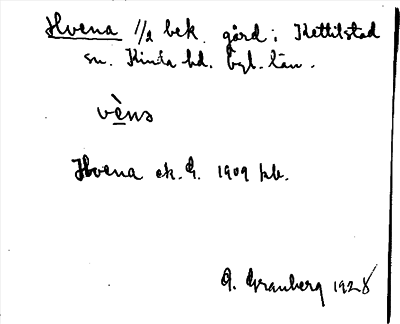 Hvena 1/2 bek. gård i Kettilstad
sn. Kinda hd. Ögl. län.
vèns
Hvena ek. G. 1909 kb.
G. Granberg 1928